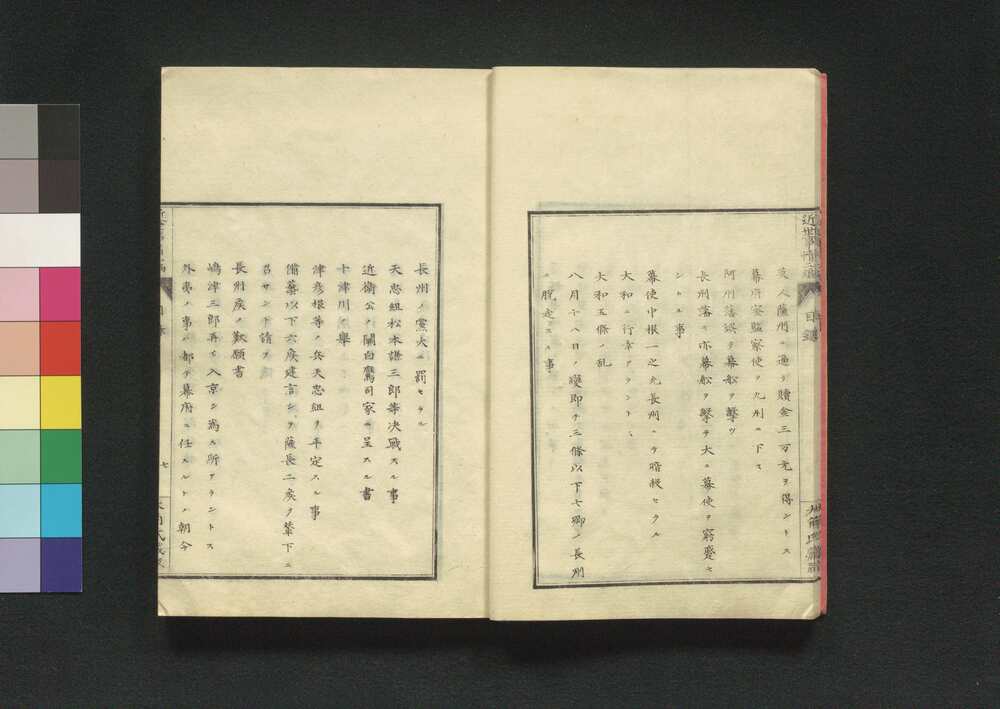 英人薩州ニ迫テ贖金三万元ヲ得ントス
幕府密監察使ヲ九州ニ下ス
阿州藩誤テ幕船ヲ撃ツ
長州藩モ亦幕船ヲ撃チ大ニ幕使ヲ窮蹙セ
シムル事
幕使中根一之允長州ニテ暗殺セラル
大和ニ行幸アラント
大和五條ノ乱
八月十八日ノ變即チ三條以下七卿ノ長州
ニ脱走スル事
近世事情 目録
長州ノ黨大ニ罰セラル
天忠組松本謙三郎等决戰スル事
近衛公ノ關白鷹司家ニ呈スル書
十津川ノ擧
津彦根等ノ兵天忠組ヲ平定スル事
備幕以下六矦建言シテ薩長二矦ヲ輦下ニ
召サン丁請フ
長州矦ノ歎願書
嶋津三郎再ヒ入京シ爲ス所アラントス
外夷ノ事ハ都テ幕府ニ任スルトノ朝令
七